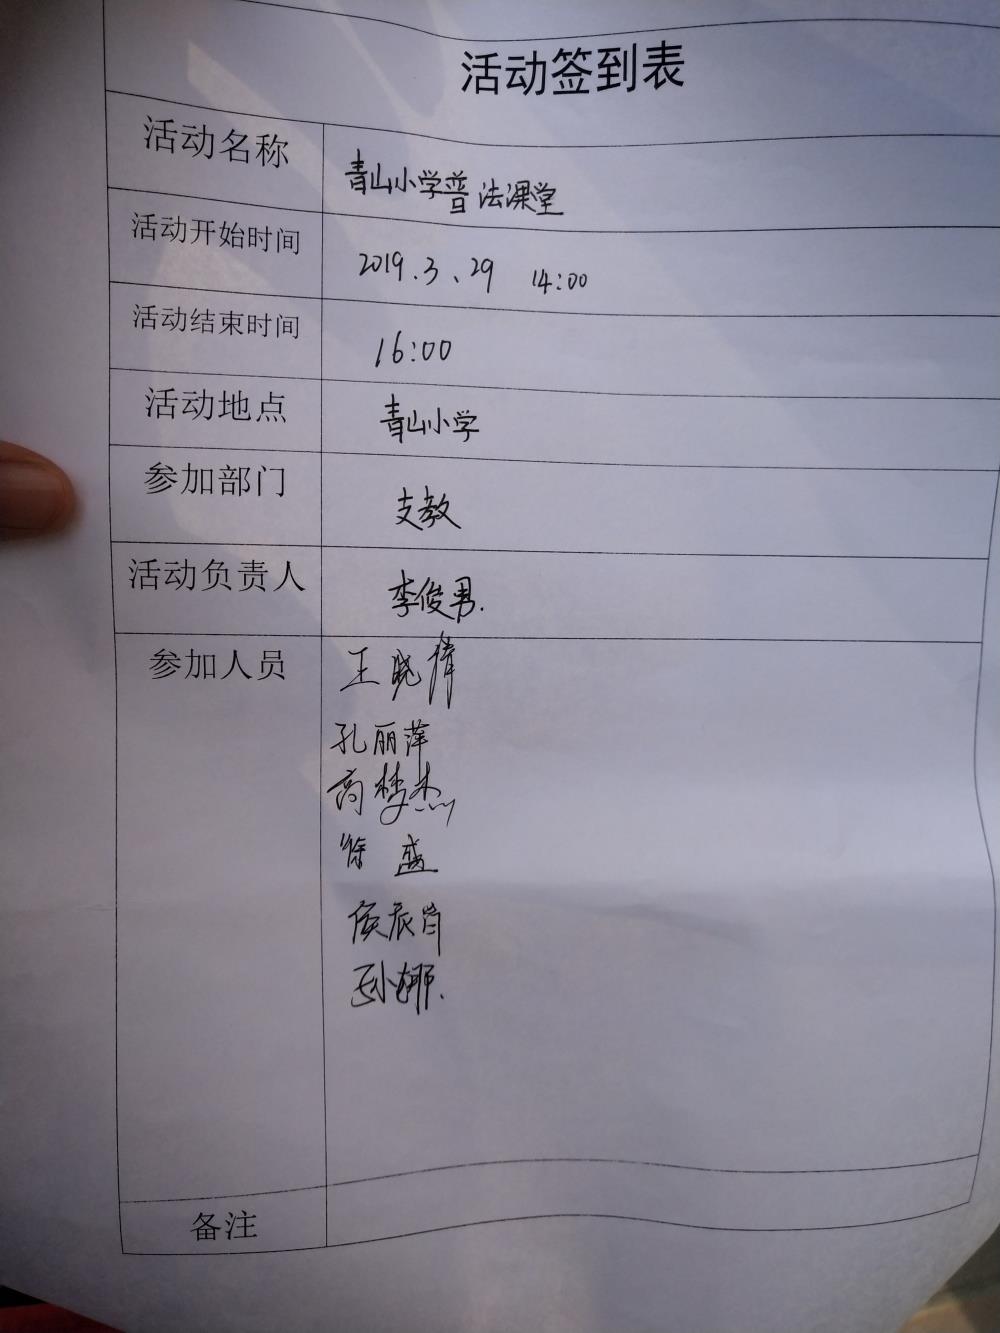 活动签到表
活动名称 青山小学普法课堂
活动开始时间 2019.3、29 14:00
活动结束时间 16:00
活动地点 青山小学
参加部门 支教
活动负责人 李俊男.
参加人员 王晓倩
孔丽萍
高梦杰
徐盛
侯辰肖
孙娜.
备注